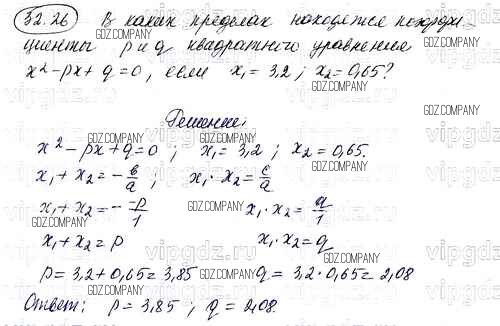 32.26 В каких пределах находятся коэффи-
циенты p и q квадратного уравнения
x² - px + q = 0, если x₁ = 3,2; x₂ = 0,65?
Решение:
x² - px + q = 0; x₁ = 3,2; x₂ = 0,65.
x₁ + x₂ = -в/a; x₁ · x₂ = c/a
x₁ + x₂ = - -p/1 x₁ · x₂ = q/1
x₁ + x₂ = p x₁ · x₂ = q
p = 3,2 + 0,65 = 3,85 q = 3,2 · 0,65 = 2,08
Ответ: p = 3,85; q = 2,08.
GDZ.COMPANY
vipgdz.ru